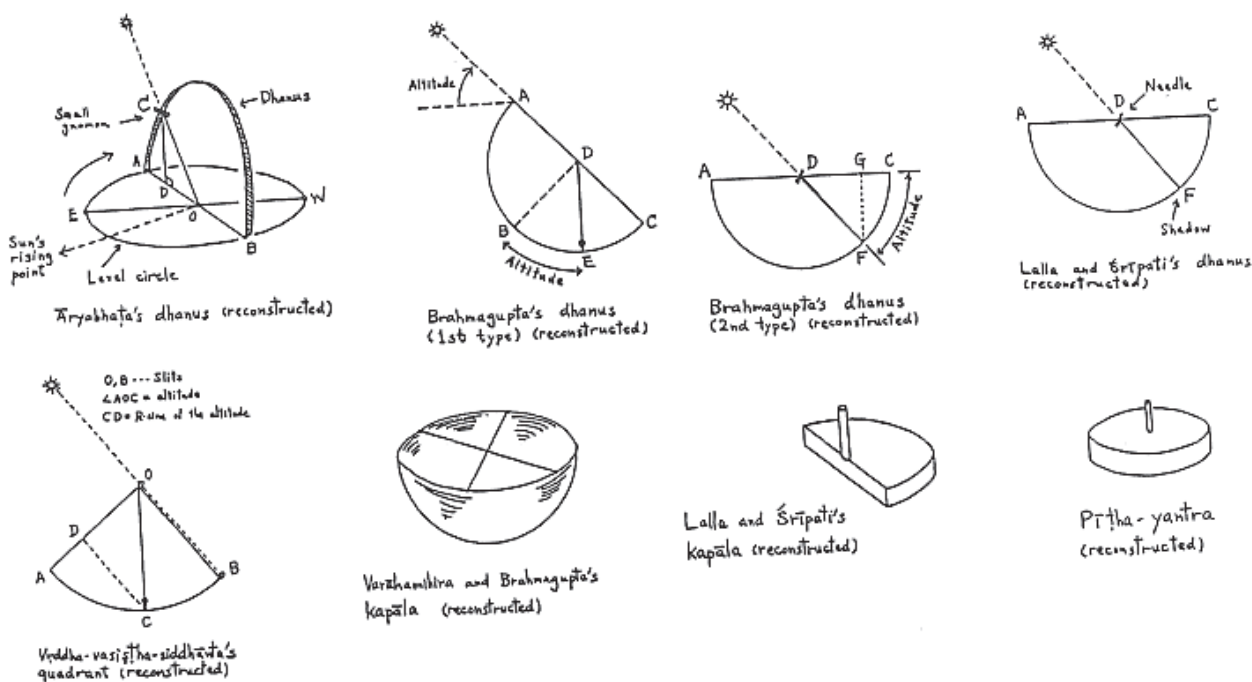 C
Small
gnomon
Dhanus
A
D
E
O
W
B
Sun's
rising
point
Level circle
Āryabhaṭa's dhanus (reconstructed)
Altitude
A
D
B
C
E
Altitude
Brahmagupta's dhanus
(1st type) (reconstructed)
A
D
G
C
F
Altitude
Brahmagupta's dhanus
(2nd type) (reconstructed)
D
Needle
A
C
F
Shadow
Lalla and Śrīpati's dhanus
(reconstructed)
O, B --- Slits
∠AOC = altitude
CD = R-sine of the altitude
O
D
A
B
C
Vṛddha-vasiṣṭha-siddhānta's
quadrant (reconstructed)
Varāhamihira and Brahmagupta's
kapāla (reconstructed)
Lalla and Śrīpati's
kapāla (reconstructed)
Pīṭha-yantra
(reconstructed)